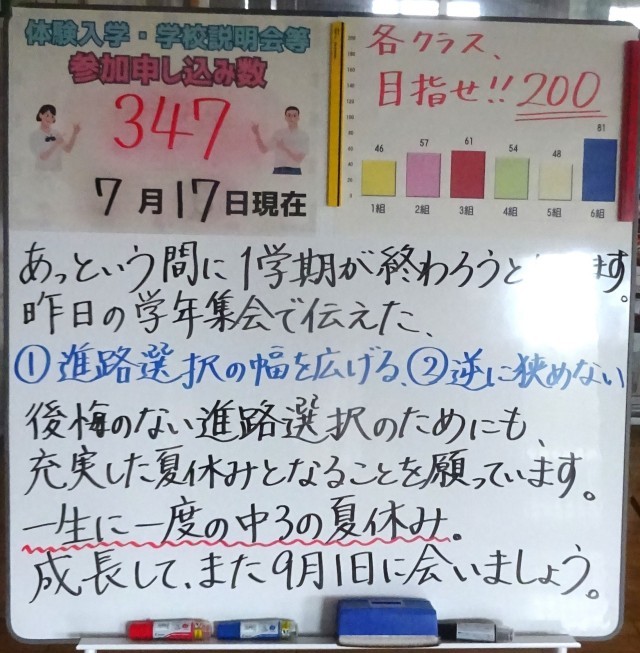 体験入学・学校説明会等
参加申し込み数
347
7月17日現在
各クラス、
目指せ!!200
46 57 61 54 48 81
1組 2組 3組 4組 5組 6組
あっという間に1学期が終わろうと ます。
昨日の学年集会で伝えた、
①進路選択の幅を広げる、②逆に狭めない
後悔のない進路選択のためにも、
充実した夏休みとなることを願っています。
一生に一度の中3の夏休み。
成長して、また9月1日に会いましょう。